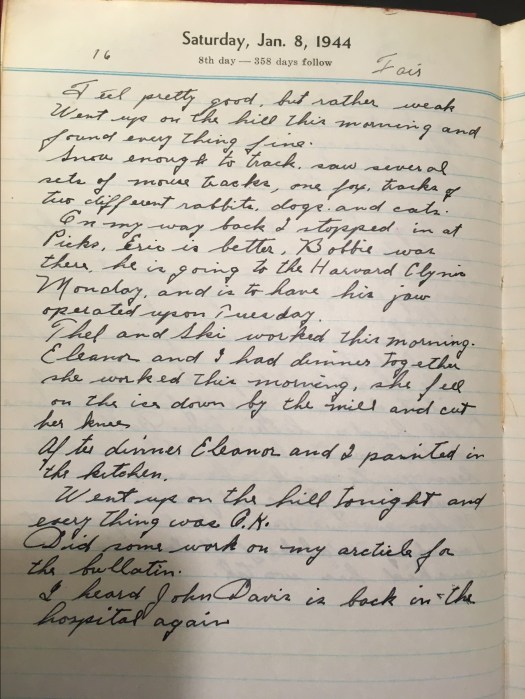 Saturday, Jan. 8, 1944
16
8th day — 358 days follow
Fair
Feel pretty good, but rather weak
Went up on the hill this morning and
found every thing fine.
Snow enough to track. saw several
sets of mouse tracks, one fox, tracks of
two different rabbits, dogs and cats.
On my way back I stopped in at
Picks, Eric is better, Bobbie was
there, he is going to the Harvard Clynic
Monday, and is to have his jaw
operated upon Tuesday.
Thel and Ski worked this morning.
Eleanor and I had dinner together
she worked this morning, she feel
on the ice down by the mill and cut
her knee
After dinner Eleanor and I painted in
the kitchen.
Went up on the hill tonight and
every thing was O.K.
Did some work on my arcticle for
the bullatin.
I heard John Davis is back in the
hospital again